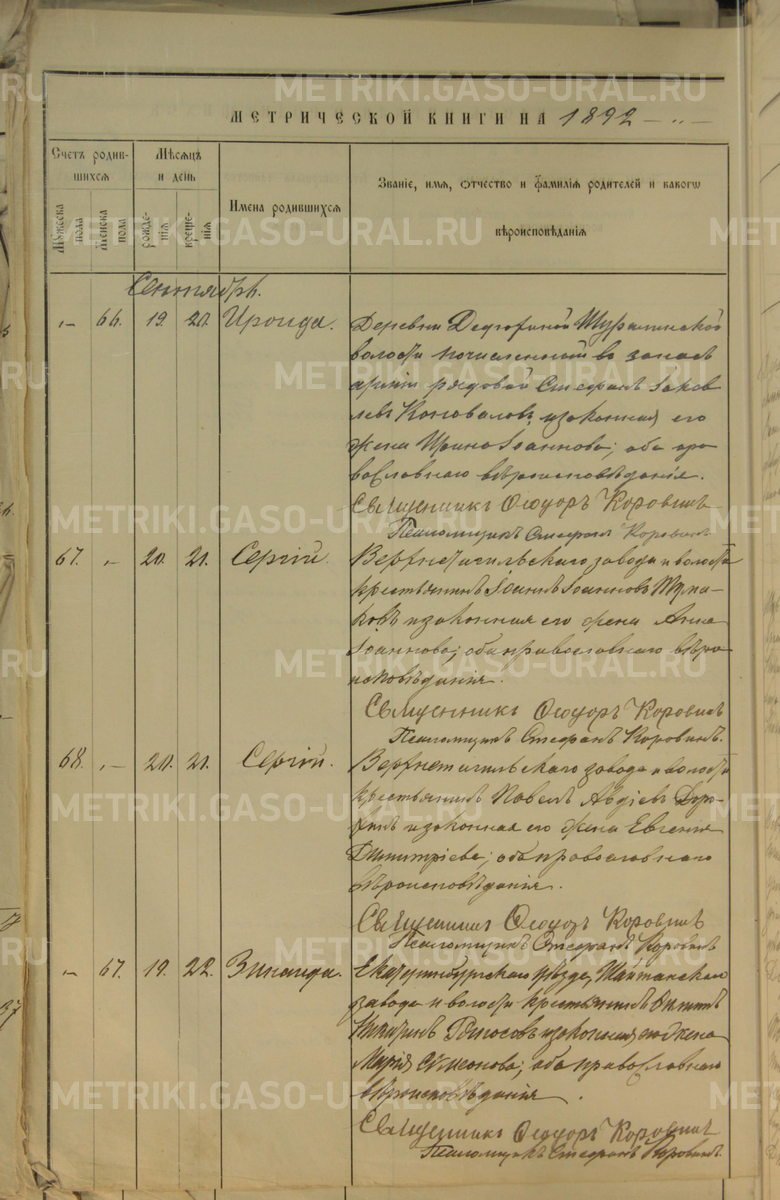 METRIKI.GASO-URAL.RU
МЕТРИЧЕСКОЙ КНИГИ НА 1892
Счетъ родившихся
Мѣсяцъ и день
Имена родившихся
Званіе, имя, отчество и фамилія родителей и какого
вѣроисповѣданія
Мужеска пола
Женска пола
рожденія
крещенія
Сентябрь.
66. 19. 20. Ироида.
Деревни
волости во запас
арміи рядовой Стефанъ Іаков
левъ Коноваловъ и законная его
жена Ирина Іоаннова; оба пра
вославнаго вѣроисповѣданія.
Священникъ Ѳеодоръ Коровинъ
Псаломщикъ Стефанъ Коровинъ
67. 20. 21. Сергій.
Верхнетагильскаго завода и волости
крестьянинъ Іоаннъ Іоанновъ
и законная его жена Анна
Іоаннова; оба православнаго вѣро
исповѣданія.
Священникъ Ѳеодоръ Коровинъ
Псаломщикъ Стефанъ Коровинъ.
68. 20. 21. Сергій.
Верхнетагильскаго завода и волости
крестьянинъ Павелъ Авдіевъ
и законная его жена Евгенія
Димитріева; оба православнаго
вѣроисповѣданія.
Священникъ Ѳеодоръ Коровинъ
Псаломщикъ Стефанъ Коровинъ
67. 19. 22. Зинаида.
Екатеринбургскаго уѣзда, Шайтанскаго
завода и волости крестьянинъ
и законная его жена
Марія Симеонова; оба православнаго
вѣроисповѣданія.
Священникъ Ѳеодоръ Коровинъ
Псаломщикъ Стефанъ Коровинъ.